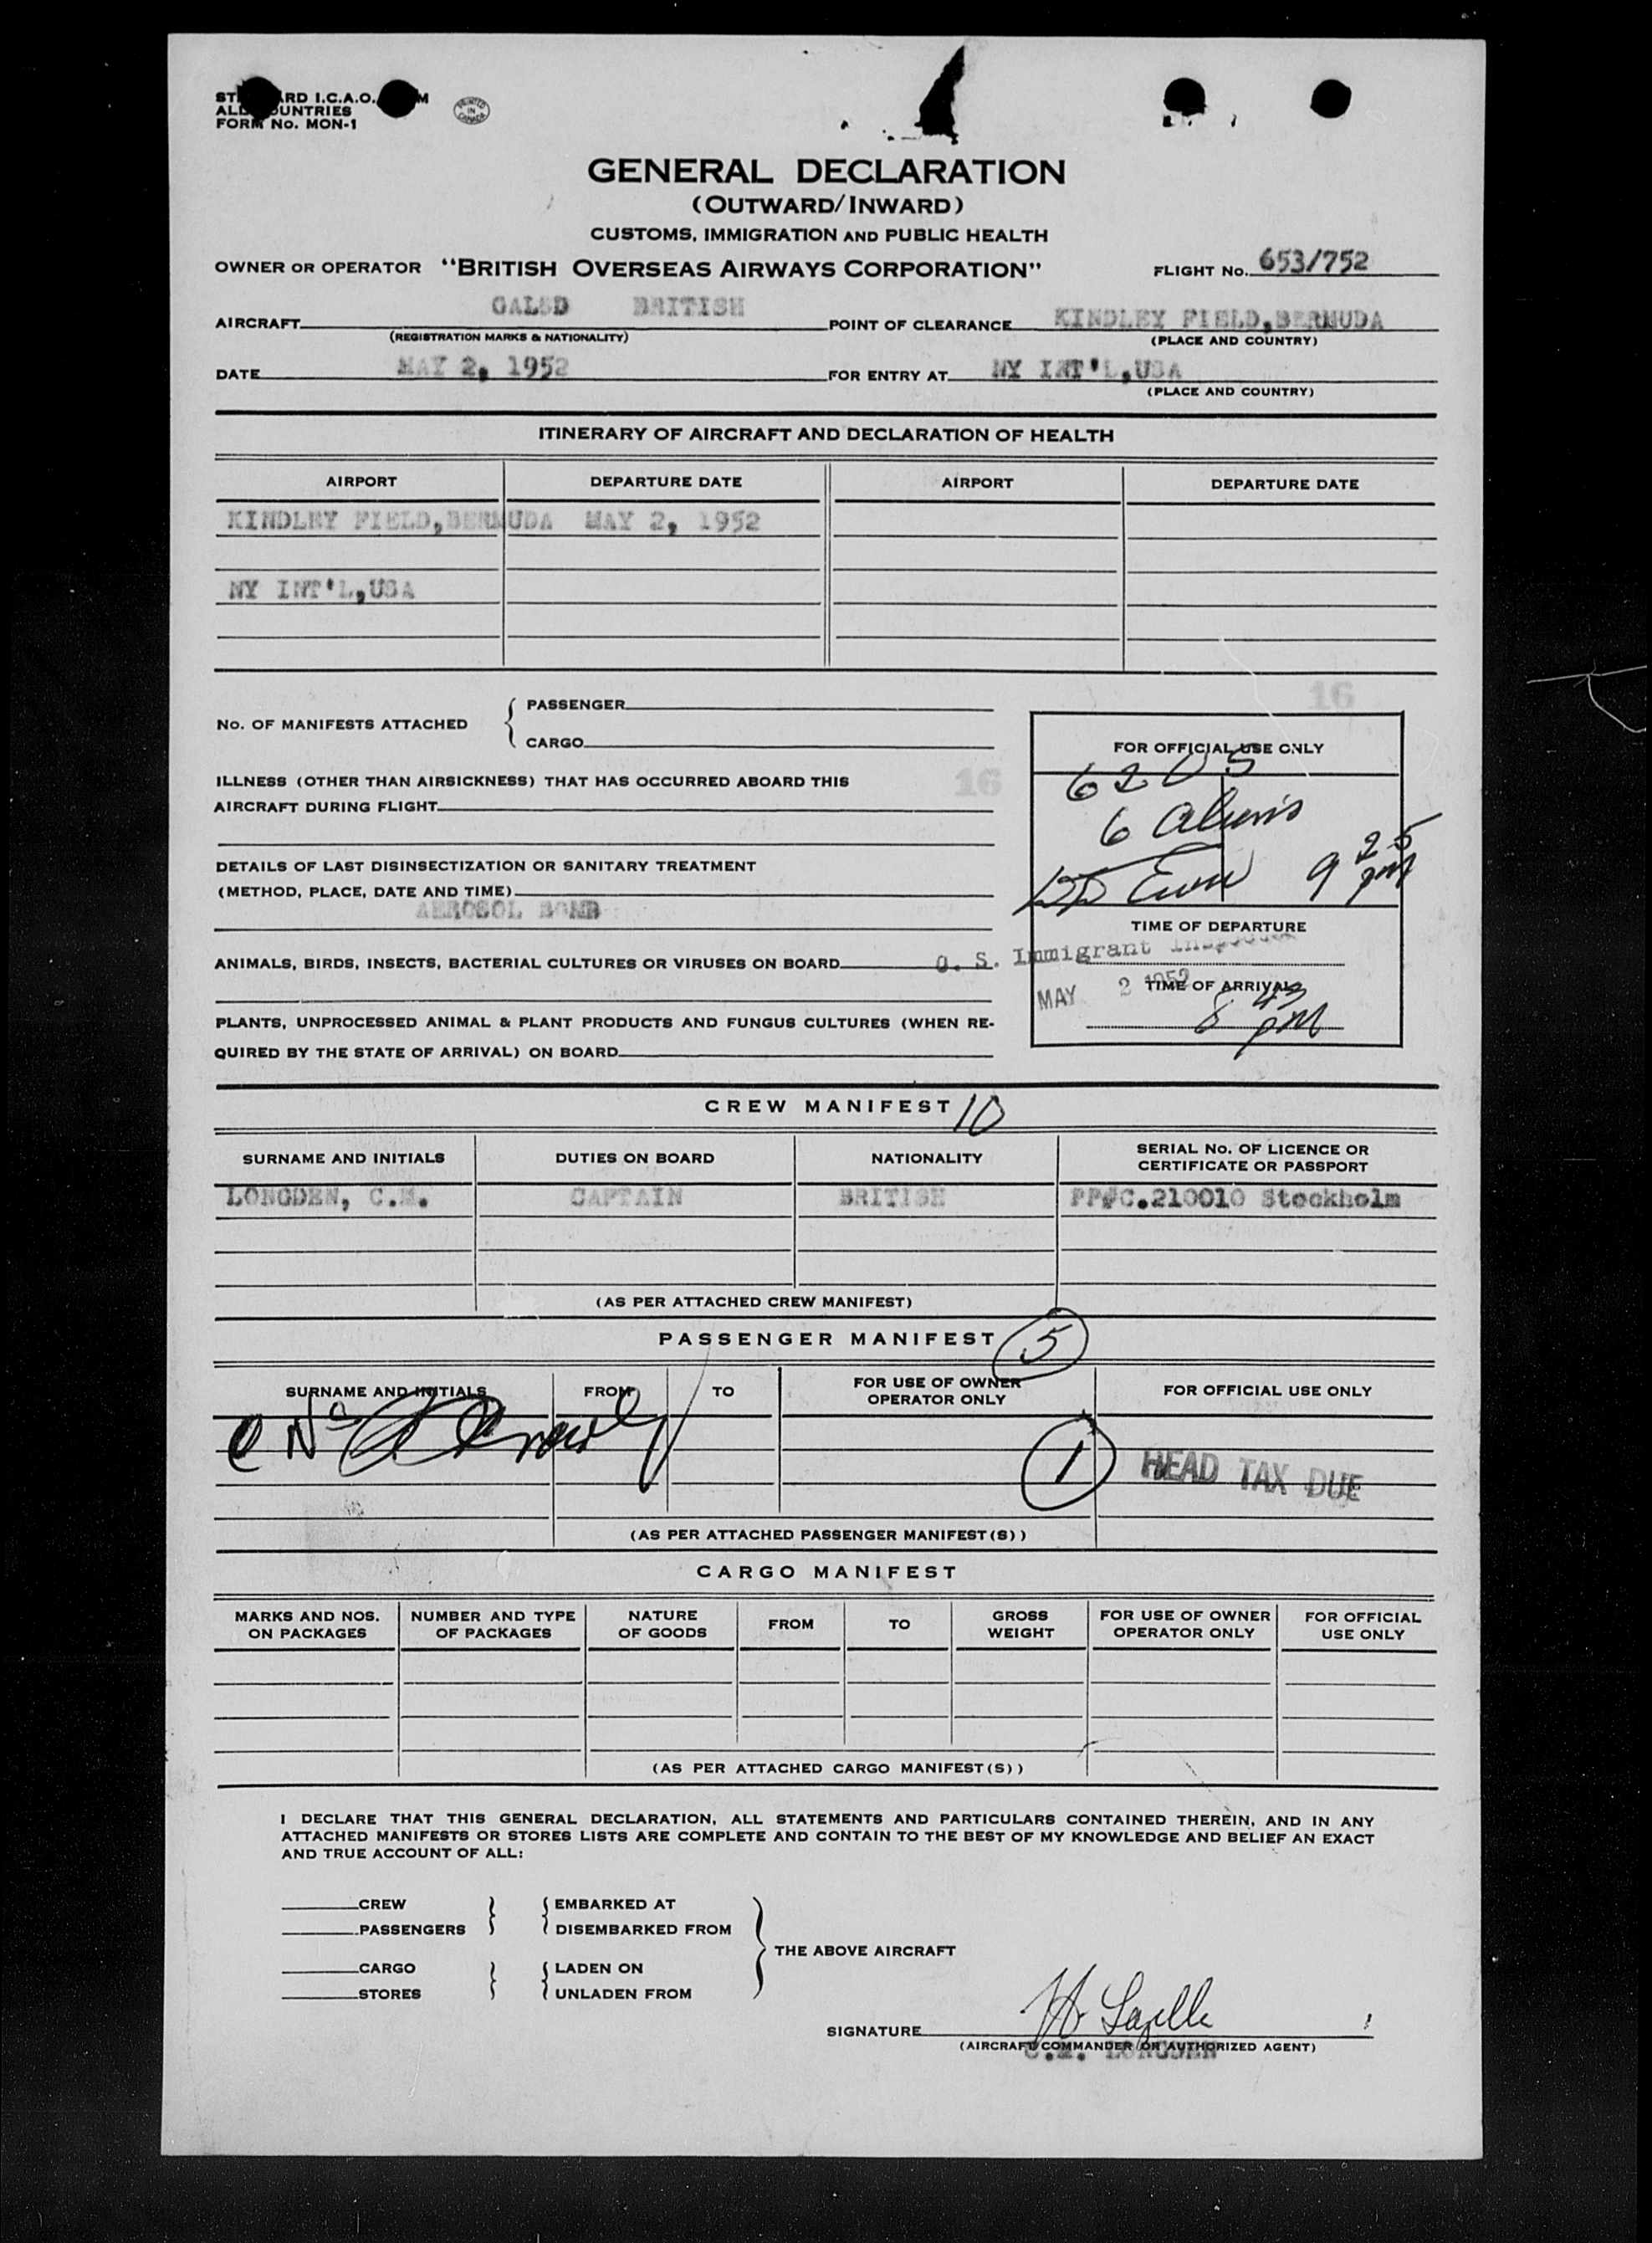 I.C.A.O.
FORM No. MON-1
PRINTED IN CANADA
GENERAL DECLARATION
(OUTWARD/INWARD)
CUSTOMS, IMMIGRATION AND PUBLIC HEALTH
OWNER OR OPERATOR "BRITISH OVERSEAS AIRWAYS CORPORATION" FLIGHT No. 653/752
AIRCRAFT GALSD BRITISH POINT OF CLEARANCE KINDLEY FIELD, BERMUDA
(REGISTRATION MARKS & NATIONALITY) (PLACE AND COUNTRY)
DATE MAY 2, 1952 FOR ENTRY AT NY INT'L, USA
(PLACE AND COUNTRY)
ITINERARY OF AIRCRAFT AND DECLARATION OF HEALTH
AIRPORT DEPARTURE DATE AIRPORT DEPARTURE DATE
KINDLEY FIELD, BERMUDA MAY 2, 1952
NY INT'L, USA
16
No. OF MANIFESTS ATTACHED
PASSENGER
CARGO
ILLNESS (OTHER THAN AIRSICKNESS) THAT HAS OCCURRED ABOARD THIS
AIRCRAFT DURING FLIGHT
16
DETAILS OF LAST DISINSECTIZATION OR SANITARY TREATMENT
(METHOD, PLACE, DATE AND TIME)
AEROSOL BOMB
ANIMALS, BIRDS, INSECTS, BACTERIAL CULTURES OR VIRUSES ON BOARD
PLANTS, UNPROCESSED ANIMAL & PLANT PRODUCTS AND FUNGUS CULTURES (WHEN RE-
QUIRED BY THE STATE OF ARRIVAL) ON BOARD
FOR OFFICIAL USE ONLY
6 aliens
9 25 pm
TIME OF DEPARTURE
U. S. Immigrant Inspector
MAY 2 1952
TIME OF ARRIVAL
8 43 pm
CREW MANIFEST 10
SURNAME AND INITIALS DUTIES ON BOARD NATIONALITY SERIAL No. OF LICENCE OR
CERTIFICATE OR PASSPORT
LONGDEN, C.M. CAPTAIN BRITISH PP#C.210010 Stockholm
(AS PER ATTACHED CREW MANIFEST)
PASSENGER MANIFEST 5
SURNAME AND INITIALS FROM TO FOR USE OF OWNER
OPERATOR ONLY FOR OFFICIAL USE ONLY
1 HEAD TAX DUE
(AS PER ATTACHED PASSENGER MANIFEST(S))
CARGO MANIFEST
MARKS AND NOS. NUMBER AND TYPE NATURE FROM TO GROSS FOR USE OF OWNER FOR OFFICIAL
ON PACKAGES OF PACKAGES OF GOODS WEIGHT OPERATOR ONLY USE ONLY
(AS PER ATTACHED CARGO MANIFEST(S))
I DECLARE THAT THIS GENERAL DECLARATION, ALL STATEMENTS AND PARTICULARS CONTAINED THEREIN, AND IN ANY
ATTACHED MANIFESTS OR STORES LISTS ARE COMPLETE AND CONTAIN TO THE BEST OF MY KNOWLEDGE AND BELIEF AN EXACT
AND TRUE ACCOUNT OF ALL:
CREW EMBARKED AT
PASSENGERS DISEMBARKED FROM
THE ABOVE AIRCRAFT
CARGO LADEN ON
STORES UNLADEN FROM
SIGNATURE
(AIRCRAFT COMMANDER OR AUTHORIZED AGENT)
C.M. LONGDEN